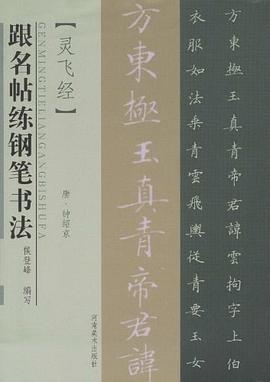 跟名帖练钢笔书法
GENMINGTIELIANGANGBISHUFA
侯登峰 编写
【灵飞经】
唐·钟绍京
河南美术出版社
方東極玉真青帝君諱
方東極玉真青帝君諱雲拘字上伯
衣服如法乘青雲飛輿從青要玉女